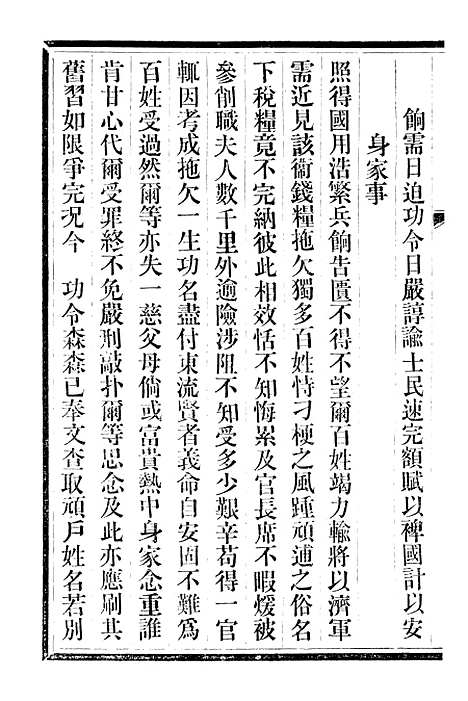 餉需日迫功令日嚴諄諭士民速完額賦以裨國計以安
身家事
照得國用浩繁兵餉吿匱不得不望爾百姓竭力輸將以濟軍
需近見該衞錢糧拖欠獨多百姓恃刁梗之風踵頑逋之俗名
下稅糧竟不完納彼此相效恬不知悔累及官長席不暇煖被
參削職夫人數千里外逾險涉阻不知受多少艱辛苟得一官
輒因考成拖欠一生功名盡付東流賢者義命自安固不難爲
百姓受過然爾等亦失一慈父母倘或富貴熱中身家念重誰
肯甘心代爾受罪終不免嚴刑敲扑爾等思念及此亦應刷其
舊習如限爭完况今 功令森森已奉文查取頑戶姓名若別